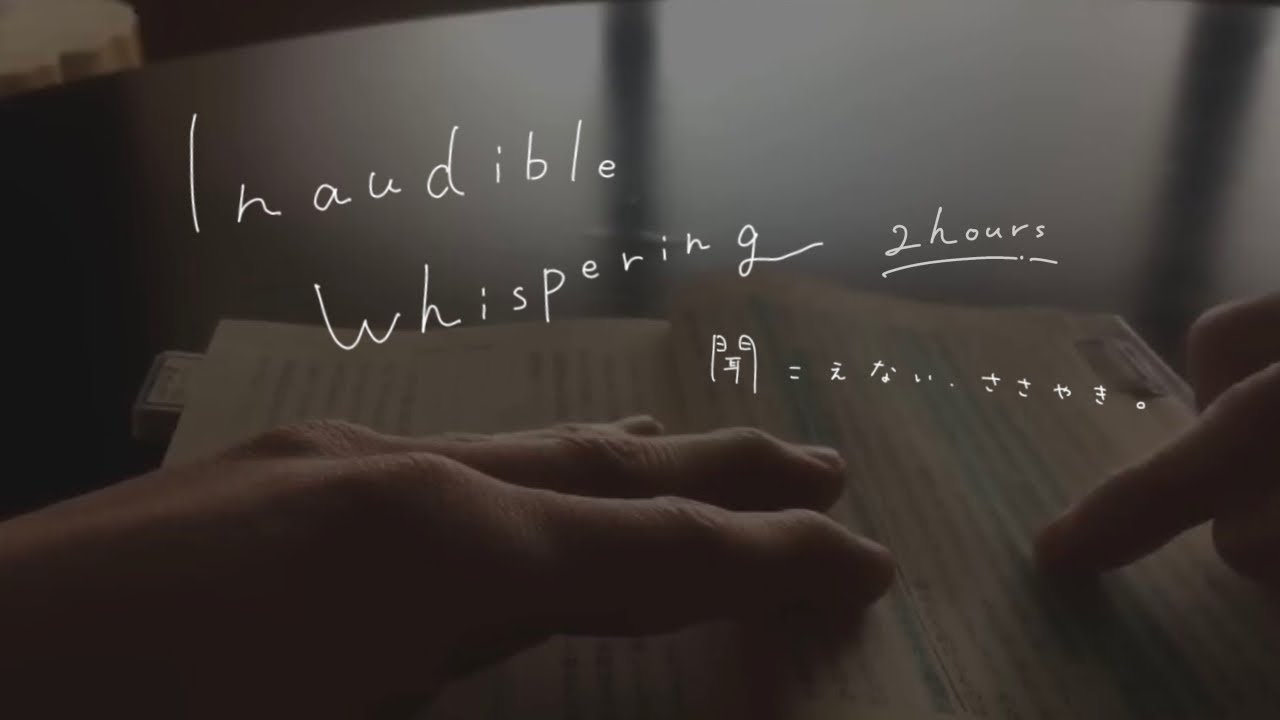 Inaudible
Whispering 2hours
聞こえない、ささやき。